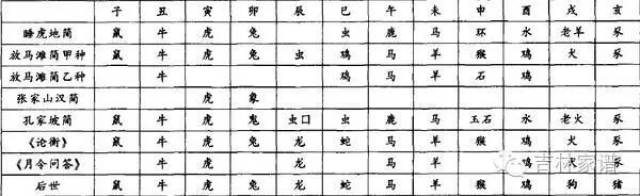 子 丑 寅 卯 辰 巳 午 未 申 酉 戌 亥
睡虎地简 鼠 牛 虎 兔 虫 鹿 马 环 水 老羊 豕
放马滩简甲种 鼠 牛 虎 兔 虫 鸡 马 羊 猴 鸡 犬 豕
放马滩简乙种 牛 鸡 马 羊 石 鸡
张家山汉简 虎 象
孔家坡简 鼠 牛 虎 鬼 虫口 虫 鹿 马 玉石 水 老火 豕
《论衡》 鼠 牛 虎 兔 龙 蛇 马 羊 猴 鸡 犬 豕
《月令问答》 牛 虎 龙 马 羊 鸡 犬 豕
后世 鼠 牛 虎 兔 龙 蛇 马 羊 猴 鸡 狗 猪
吉林家谱